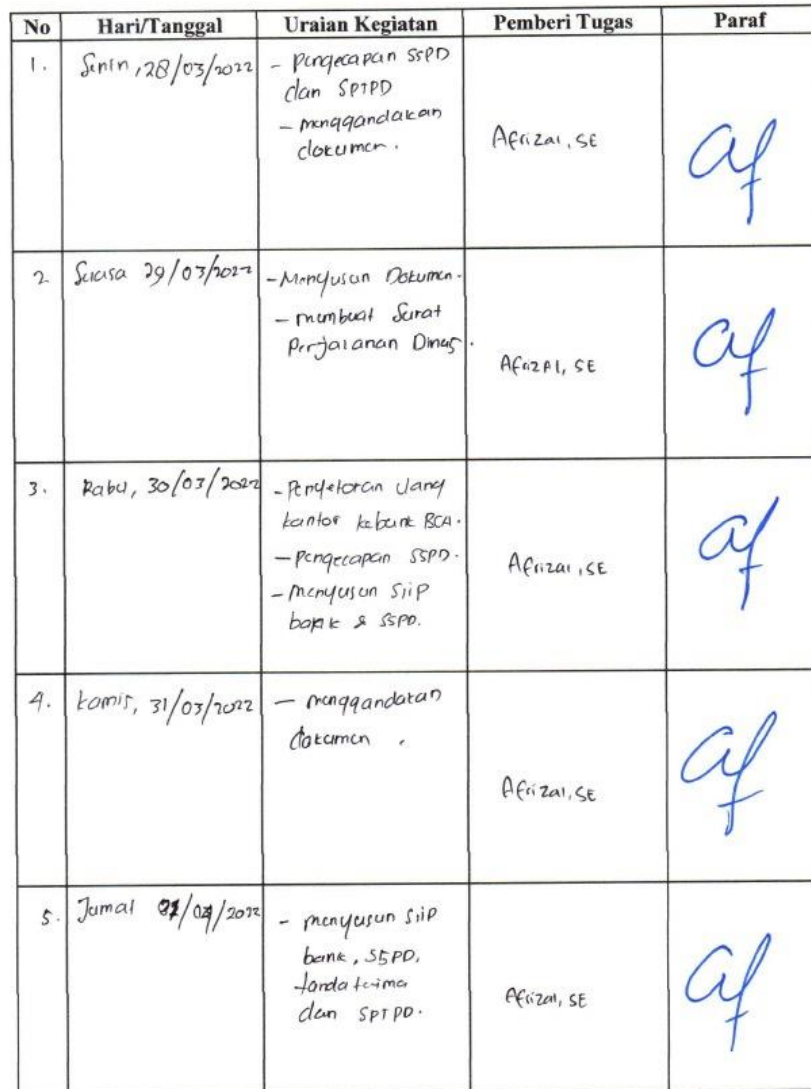 No Hari/Tanggal Uraian Kegiatan Pemberi Tugas Paraf
1. Senin, 28/03/2022 - pengecapan SSPD
dan SPTPD
- menggandakan
dokumen.
Afrizal, SE
2 Selasa 29/03/2022 - Menyusun Dokumen.
- membuat Surat
Perjalanan Dinas.
Afrizal, SE
3. Rabu, 30/03/2022 - Penyetoran Uang
kantor kebank BCA.
- pengecapan SSPD.
- menyusun Slip
bank & SSPD.
Afrizal, SE
4. kamis, 31/03/2022 - menggandakan
dokumen.
Afrizal, SE
5. Jumat 01/04/2022 - menyusun Slip
bank, SSPD,
tanda terima
dan SPTPD.
Afrizal, SE